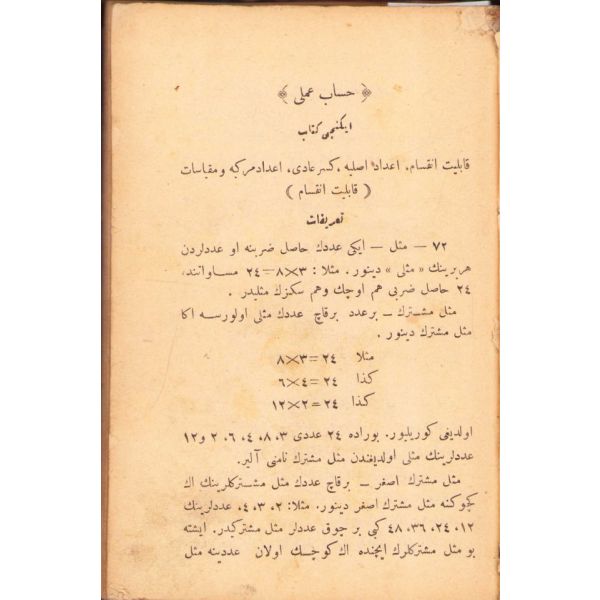 ﴿ حساب عملی ﴾
ایکنجی کتاب
قابلیت انقسام، اعداد اصلیه، کسر عادی، اعداد مرکبه و مقیاسات
( قابلیت انقسام )
تعریفات
٧٢ — مثل — ایکی عددك حاصل ضربنه او عددلردن
هر برینك « مثلی » دینور . مثلا : ٣×٨=٢٤ مساواتنده،
٢٤ حاصل ضربی هم اوچك وهم سکزك مثلیدر .
مثل مشترك — بر عدد برقاچ عددك مثلی اولورسه اکا
مثل مشترك دینور .
مثلا ٢٤=٣×٨
کذا ٢٤=٤×٦
کذا ٢٤=٢×١٢
اولدیغی کوریلیور. بوراده ٢٤ عددی ٣، ٨، ٤، ٦، ٢ و ١٢
عددلرینك مثلی اولدیغندن مثل مشترك نامنی آلیر.
مثل مشترك اصغر — برقاچ عددك مثل مشترکلرینك اك
کوچوکنه مثل مشترك اصغر دینور. مثلا: ٢، ٣، ٤، عددلرینك
١٢، ٢٤، ٣٦، ٤٨ کبی بر چوق عددلر مثل مشترکیدر. ایشته
بو مثل مشترکلرك ایچنده اك کوچك اولان عددینه مثل